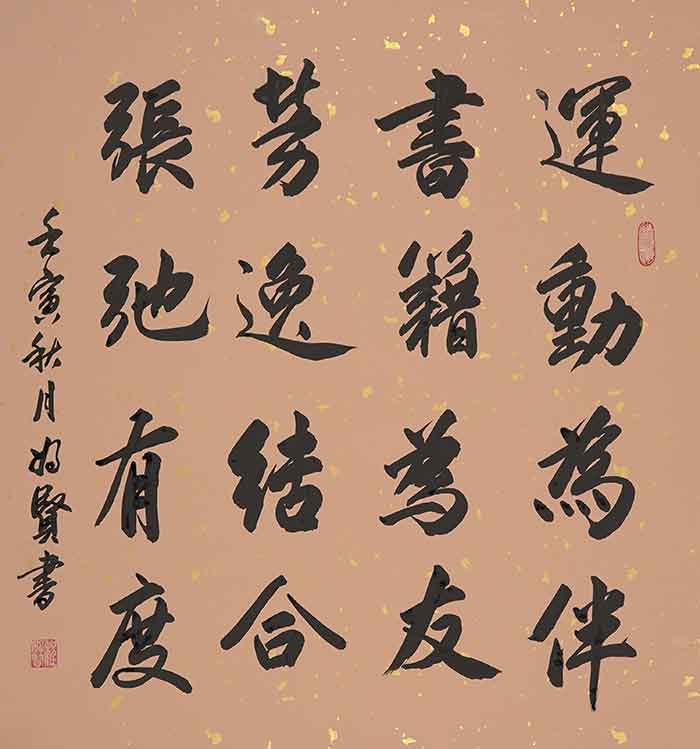 運動為伴
書籍為友
勞逸結合
張弛有度
壬寅秋月
賢書